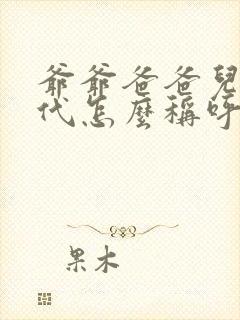 爺爺爸爸兒
代怎麼稱呼
果木